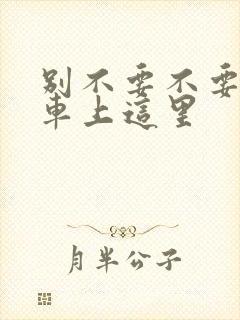 别不要不要
車上這里
月半公子